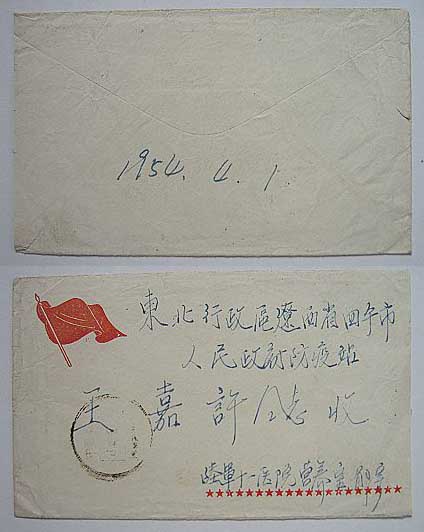 1954. 4. 1
東北行政區遼西省四平市
人民政府防疫站
王嘉許同志收
陸軍十一医院營养室